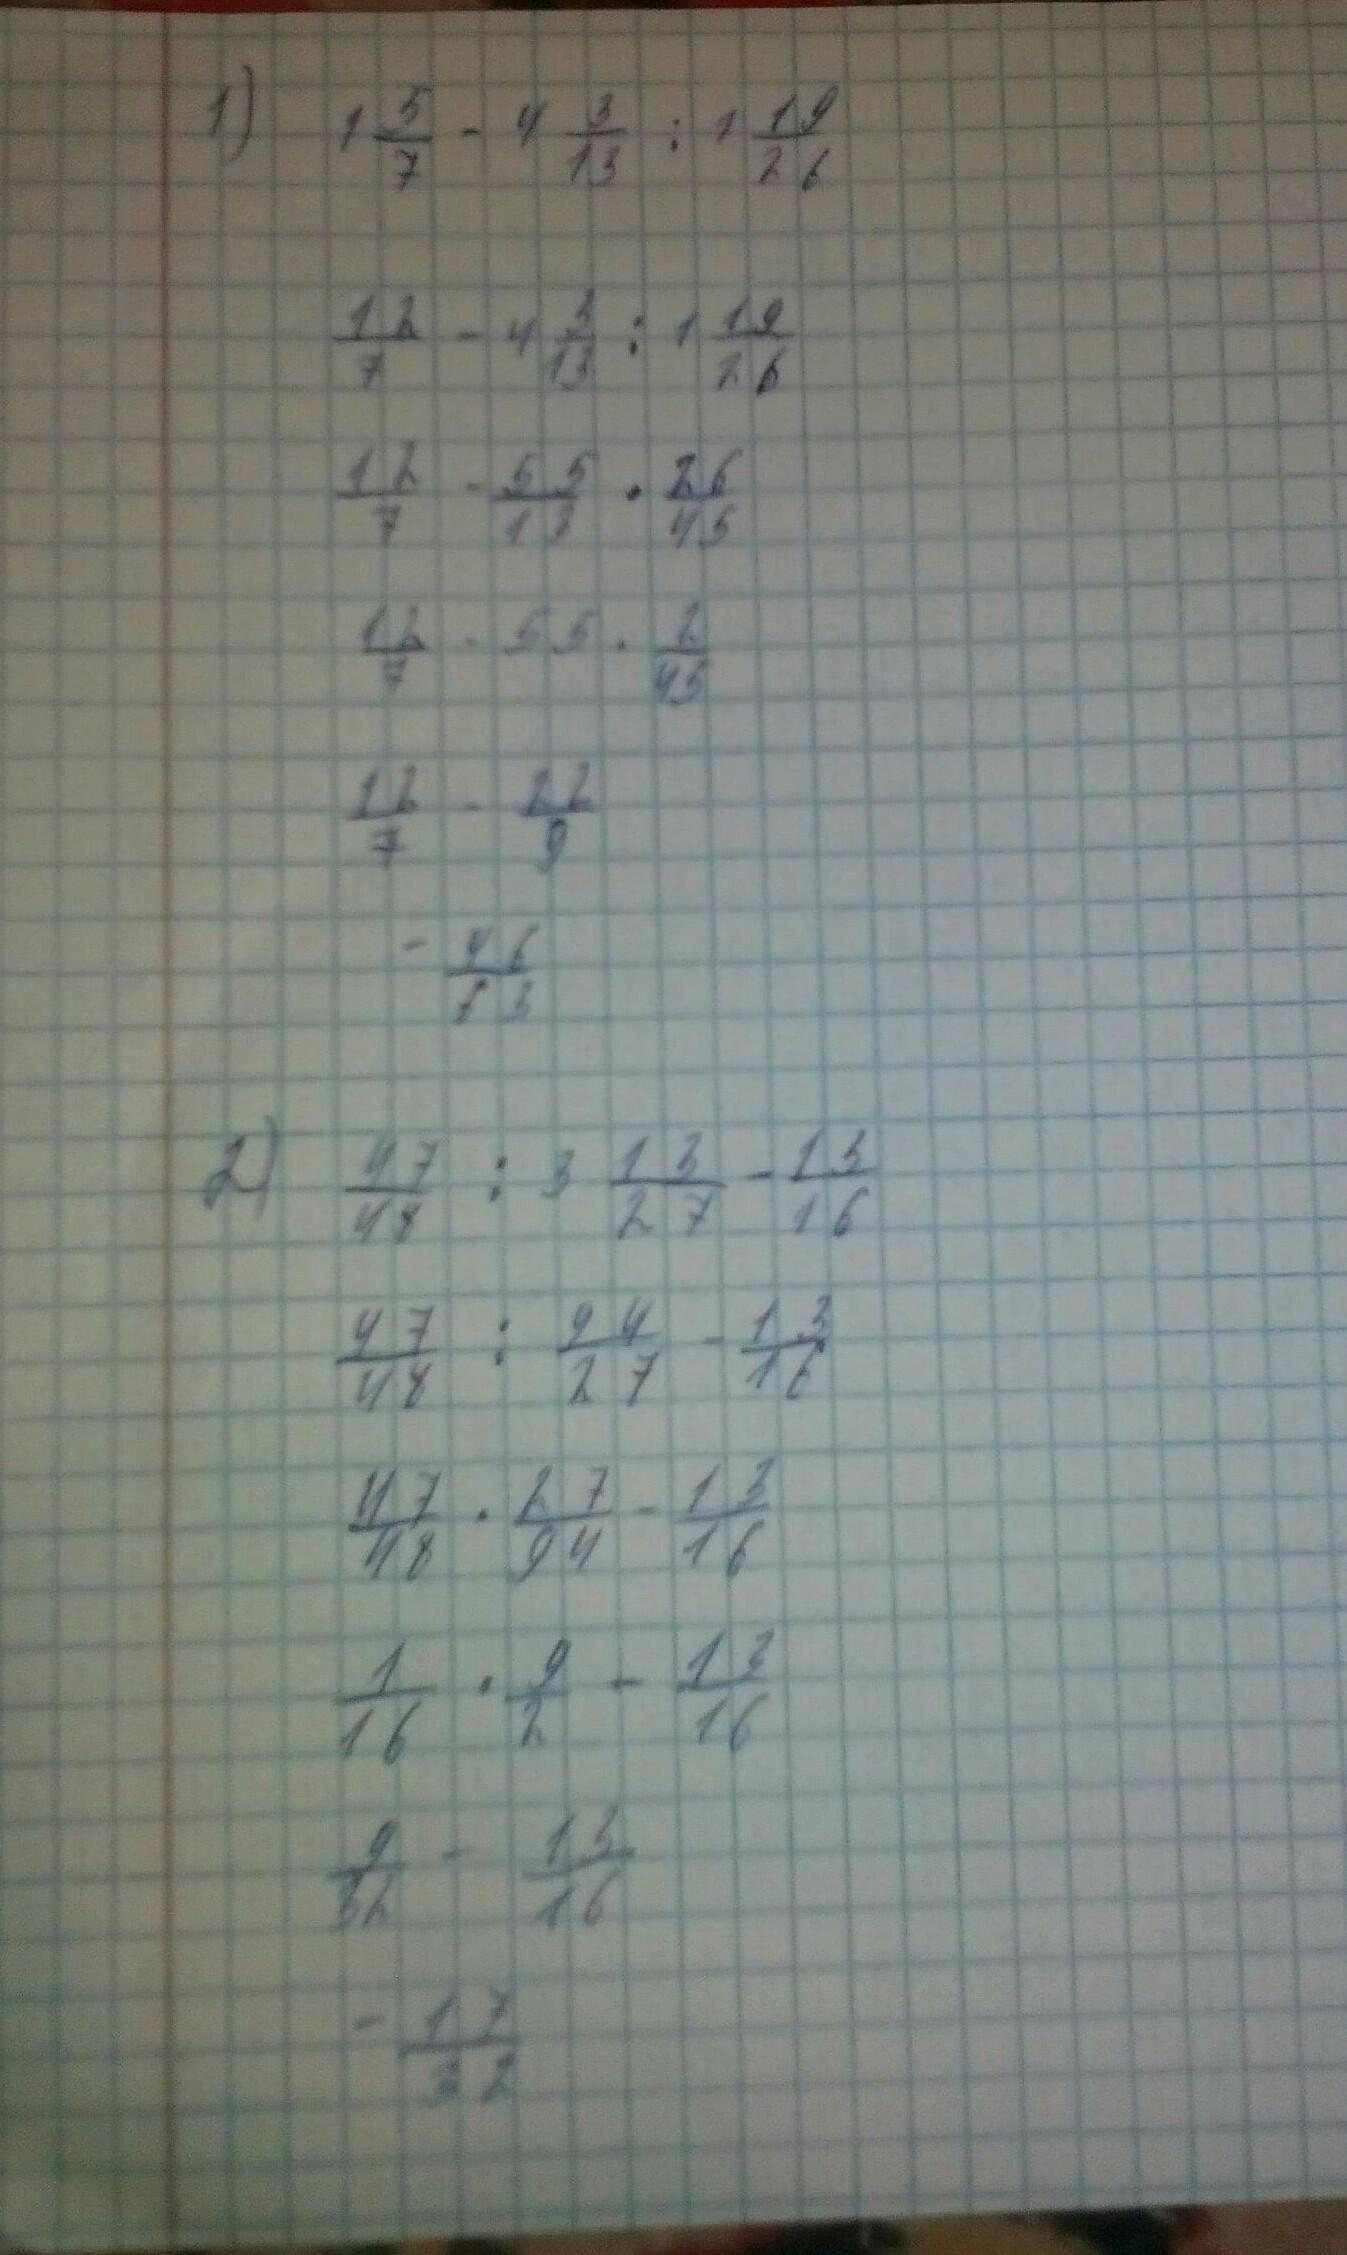 1) 1 5/7 - 4 3/13 : 1 19/26
12/7 - 4 3/13 : 1 19/26
12/7 - 55/13 · 26/45
12/7 - 55 · 2/45
12/7 - 22/9
- 46/63
2) 47/48 : 3 13/27 - 13/16
47/48 : 94/27 - 13/16
47/48 · 27/94 - 13/16
1/16 · 9/2 - 13/16
9/32 - 13/16
- 17/32